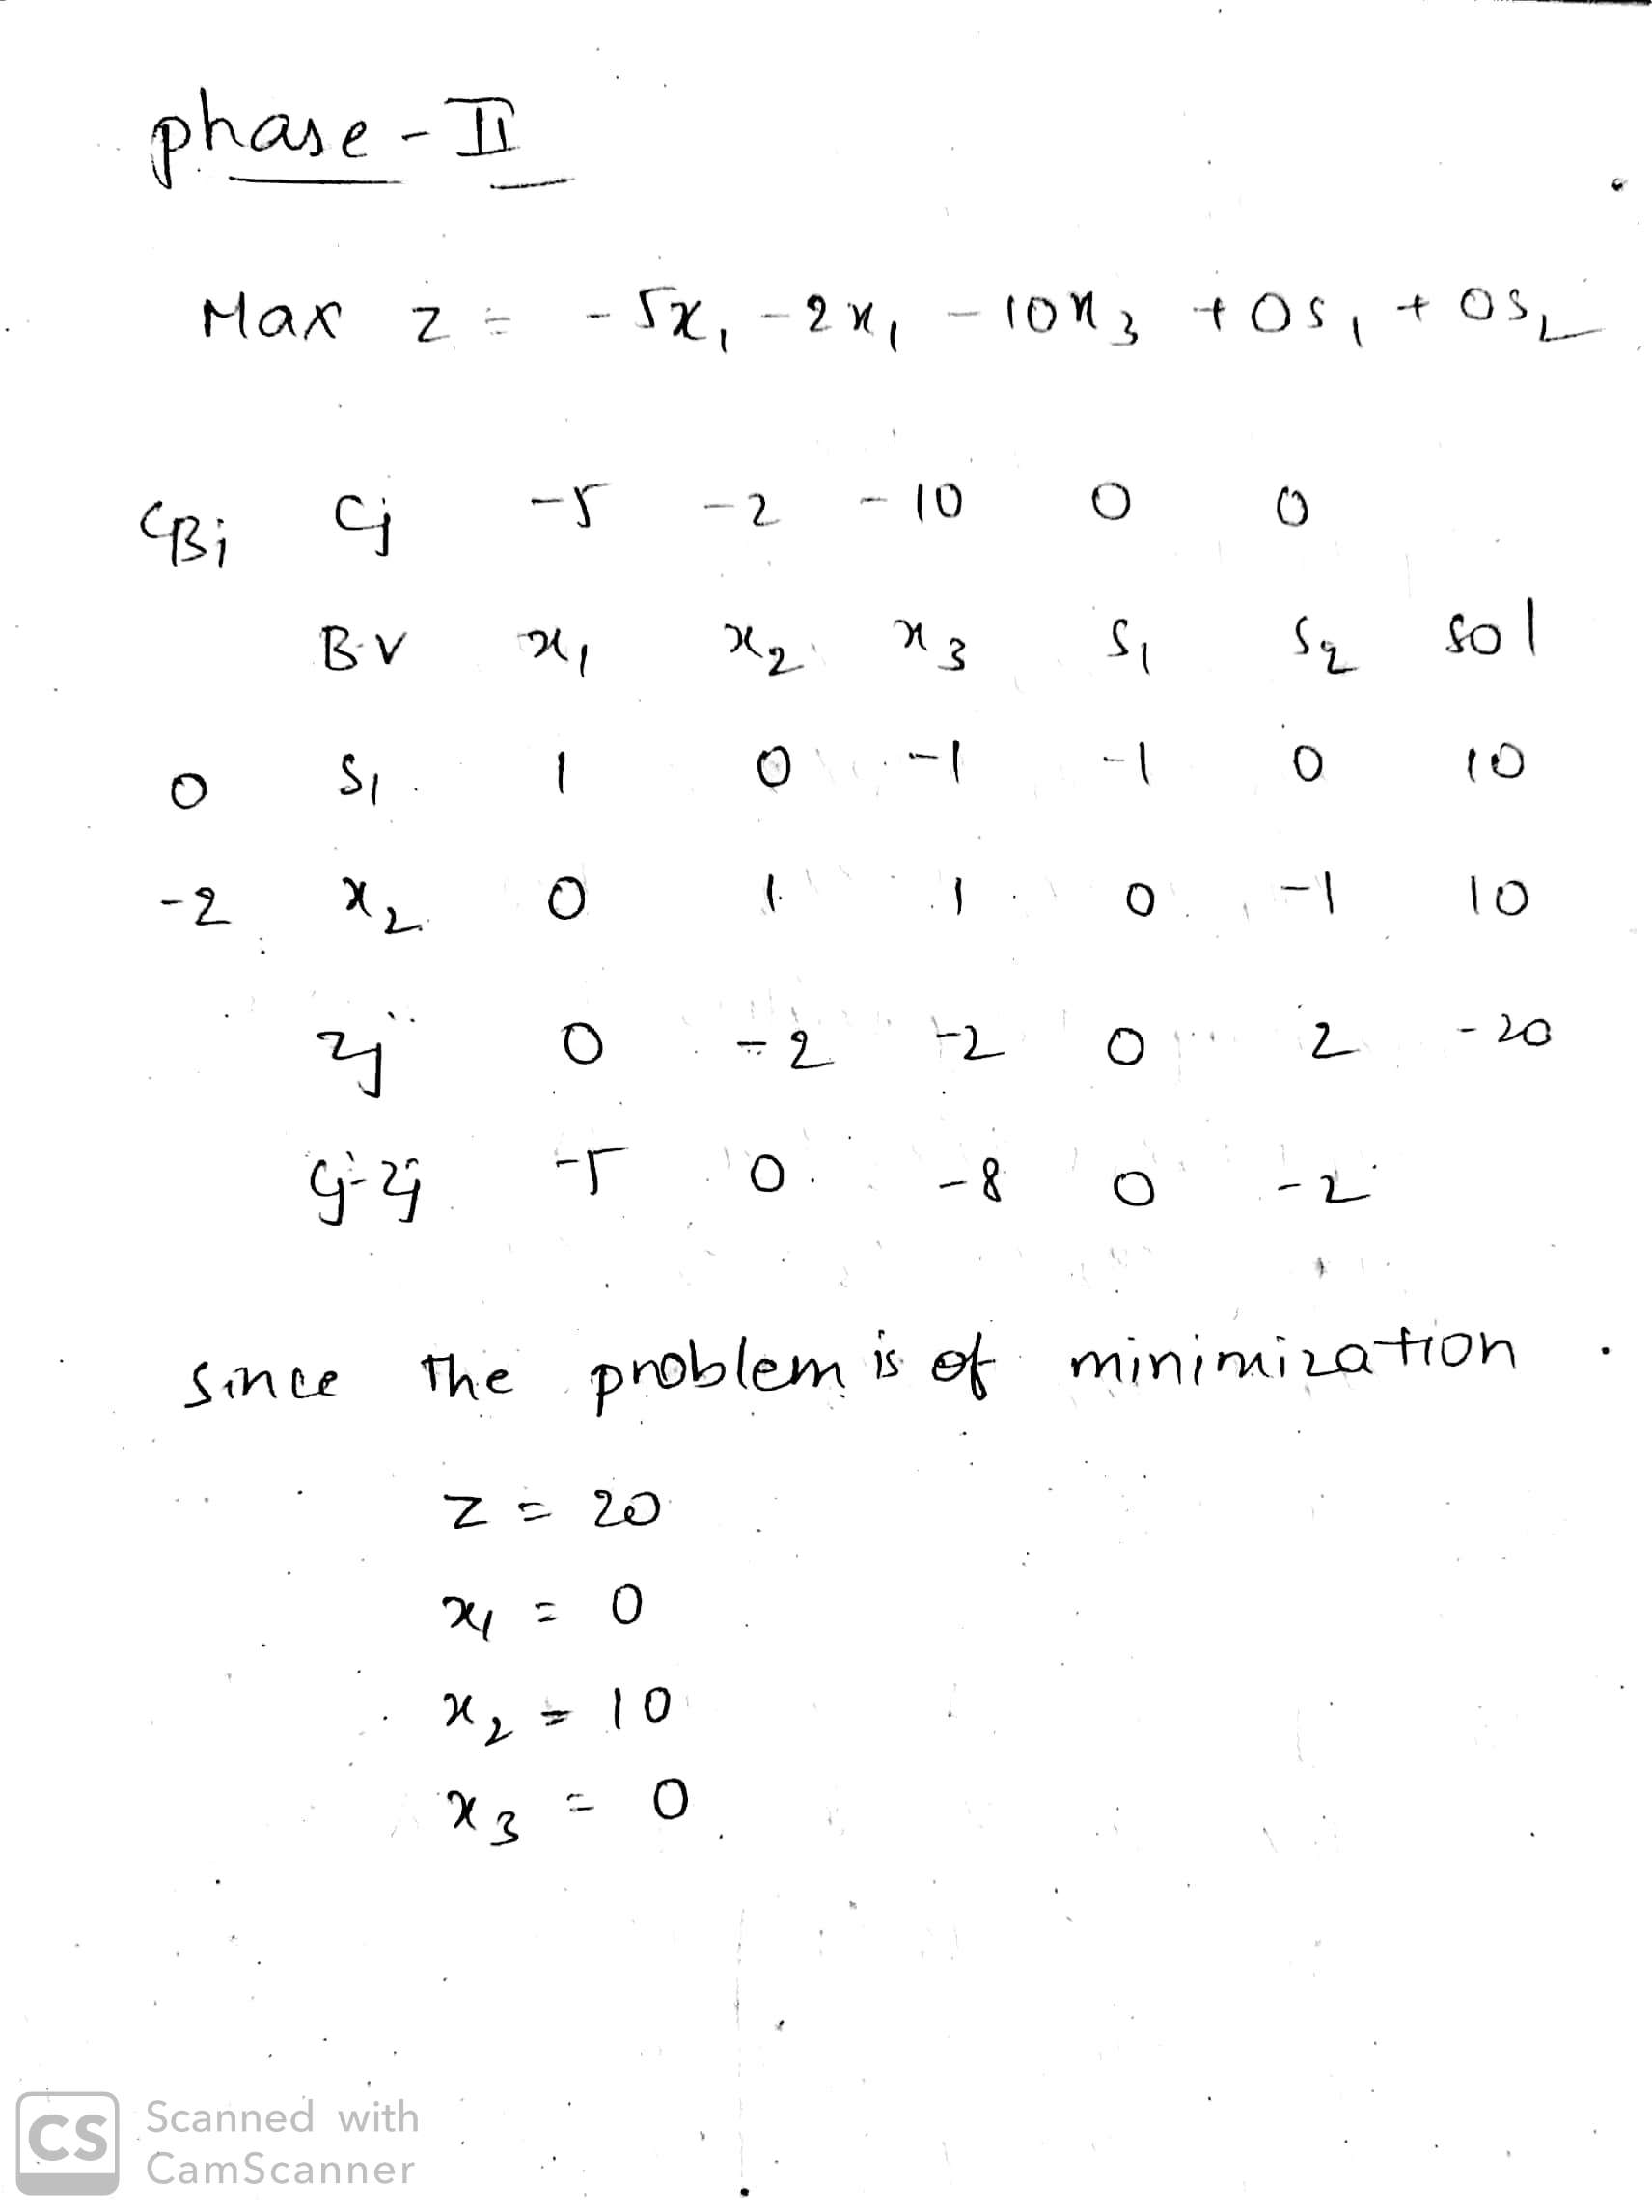 phase-II
Max z = -5x₁ -2x₁ -10x₃ +0s₁ +0s₂
CBi Cj -5 -2 -10 0 0
B.V x₁ x₂ x₃ s₁ s₂ sol
0 s₁ 1 0 -1 -1 0 10
-2 x₂ 0 1 1 0 -1 10
zj 0 -2 -2 0 2 -20
cj-zj -5 0 -8 0 -2
since the problem is of minimization.
z = 20
x₁ = 0
x₂ = 10
x₃ = 0
CS Scanned with
CamScanner